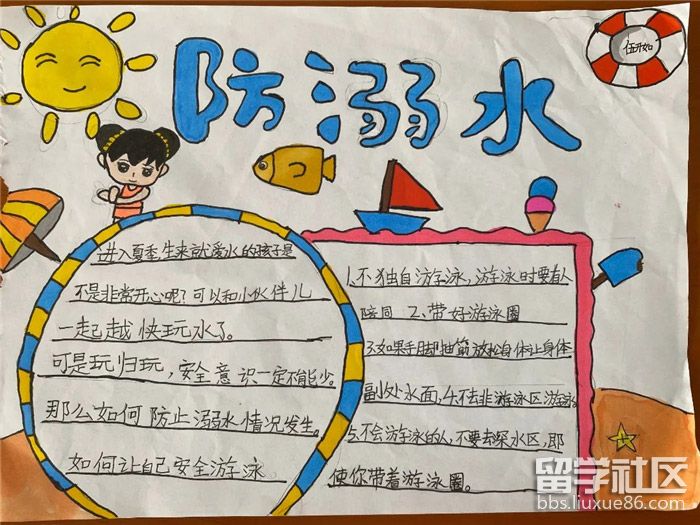 防溺水
伍开如
进入夏季生来就爱水的孩子是
不是非常开心呢?可以和小伙伴儿
一起越快玩水了。
可是玩归玩,安全意识一定不能少。
那么如何防止溺水情况发生。
如何让自己安全游泳
1.不独自游泳,游泳时要有人
陪同 2、带好游泳圈
3.如果手脚抽筋放松自体让身体
副处水面,4.不去非游泳区游泳。
5.不会游泳的人,不要去深水区,即
使你带着游泳圈。
留学社区
bbs.liuxue86.com